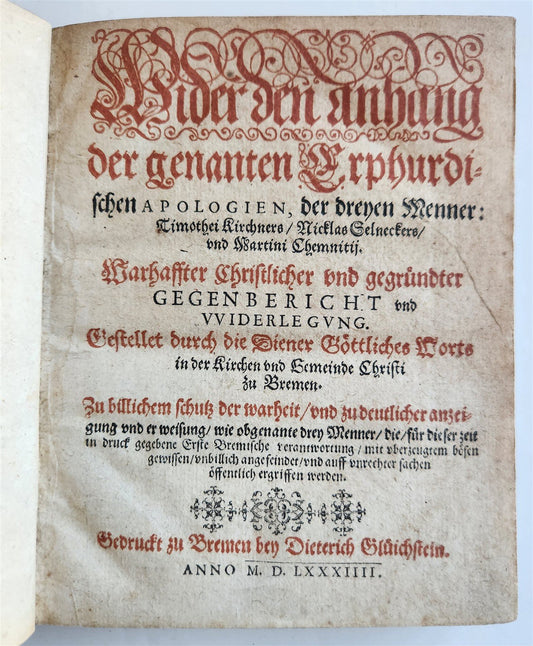 Wider den anhang
der genanten Erphurdi-
schen APOLOGIEN, der dreyen Menner:
Timothei Kirchners / Nicklas Selneckers /
vnd Martini Chemnitij.
Warhaffter Christlicher vnd gegründter
GEGENBERICHT vnd
VVIDERLEGVNG.
Gestellet durch die Diener Göttliches Worts
in der Kirchen vnd Gemeinde Christi
zu Bremen.
Zu billichem schutz der warheit / vnd zu deutlicher anzei-
gung vnd er weisung / wie obgenante drey Menner / die / für dieser zeit
in druck gegebene Erste Bremische verantwortung / mit vberzeugtem bösen
gewissen / vnbillich angefeindet / vnd auff vnrechter sachen
öffentlich ergriffen werden.
Gedruckt zu Bremen bey Dieterich Glüichstein.
ANNO M. D. LXXXIIII.